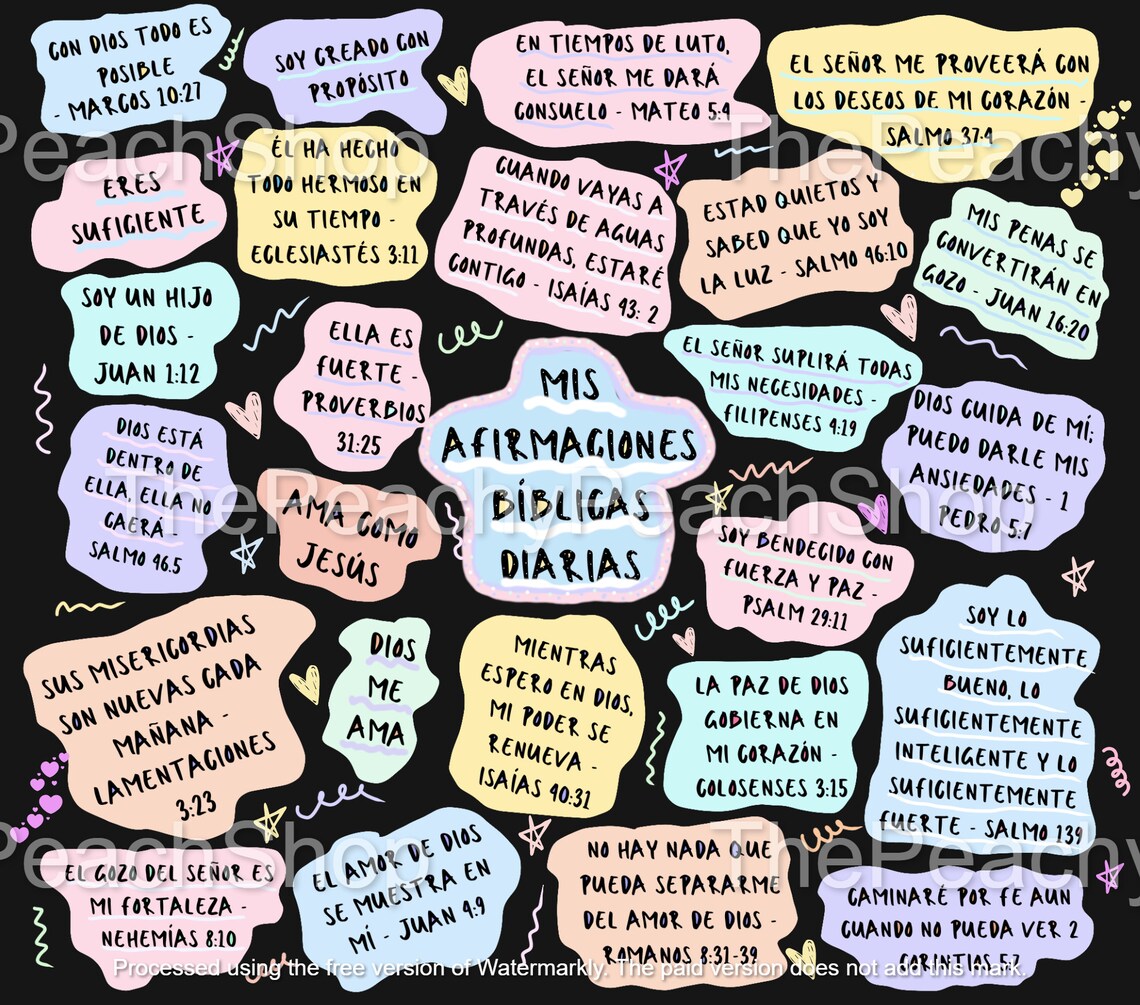 CON DIOS TODO ES
POSIBLE
- MARCOS 10:27
SOY CREADO CON
PROPÓSITO
EN TIEMPOS DE LUTO,
EL SEÑOR ME DARÁ
CONSUELO - MATEO 5:4
EL SEÑOR ME PROVEERÁ CON
LOS DESEOS DE MI CORAZÓN -
SALMO 37:4
PeachShop
ThePeachy
ERES
SUFICIENTE
ÉL HA HECHO
TODO HERMOSO EN
SU TIEMPO -
ECLESIASTÉS 3:11
CUANDO VAYAS A
TRAVÉS DE AGUAS
PROFUNDAS, ESTARÉ
CONTIGO - ISAÍAS 43: 2
ESTAD QUIETOS Y
SABED QUE YO SOY
LA LUZ - SALMO 46:10
MIS PENAS SE
CONVERTIRÁN EN
GOZO - JUAN 16:20
SOY UN HIJO
DE DIOS -
JUAN 1:12
ELLA ES
FUERTE -
PROVERBIOS
31:25
MIS
AFIRMACIONES
BÍBLICAS
DIARIAS
EL SEÑOR SUPLIRÁ TODAS
MIS NECESIDADES -
FILIPENSES 4:19
DIOS CUIDA DE MÍ;
PUEDO DARLE MIS
ANSIEDADES - 1
PEDRO 5:7
DIOS ESTÁ
DENTRO DE
ELLA, ELLA NO
CAERÁ -
SALMO 46.5
AMA COMO
JESÚS
ThePeachyPeachShop
SOY BENDECIDO CON
FUERZA Y PAZ -
PSALM 29:11
SUS MISERICORDIAS
SON NUEVAS CADA
MAÑANA -
LAMENTACIONES
3:23
DIOS
ME
AMA
MIENTRAS
ESPERO EN DIOS,
MI PODER SE
RENUEVA -
ISAÍAS 40:31
LA PAZ DE DIOS
GOBIERNA EN
MI CORAZÓN -
COLOSENSES 3:15
SOY LO
SUFICIENTEMENTE
BUENO, LO
SUFICIENTEMENTE
INTELIGENTE Y LO
SUFICIENTEMENTE
FUERTE - SALMO 139
PeachShop
ThePeachy
EL GOZO DEL SEÑOR ES
MI FORTALEZA -
NEHEMÍAS 8:10
EL AMOR DE DIOS
SE MUESTRA EN
MÍ - JUAN 4:9
NO HAY NADA QUE
PUEDA SEPARARME
DEL AMOR DE DIOS -
ROMANOS 8:31-39
CAMINARÉ POR FE AUN
CUANDO NO PUEDA VER 2
CORINTIOS 5:7
Processed using the free version of Watermarkly. The paid version does not add this mark.